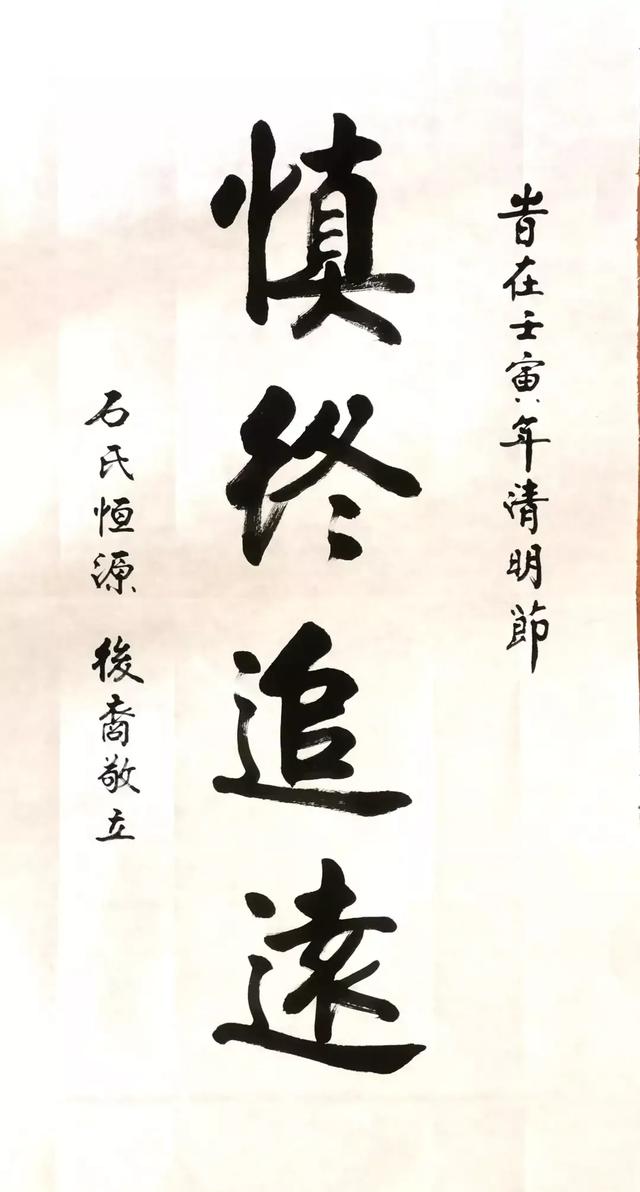 旹在壬寅年清明節
慎终追遠
石氏恒源 後裔敬立